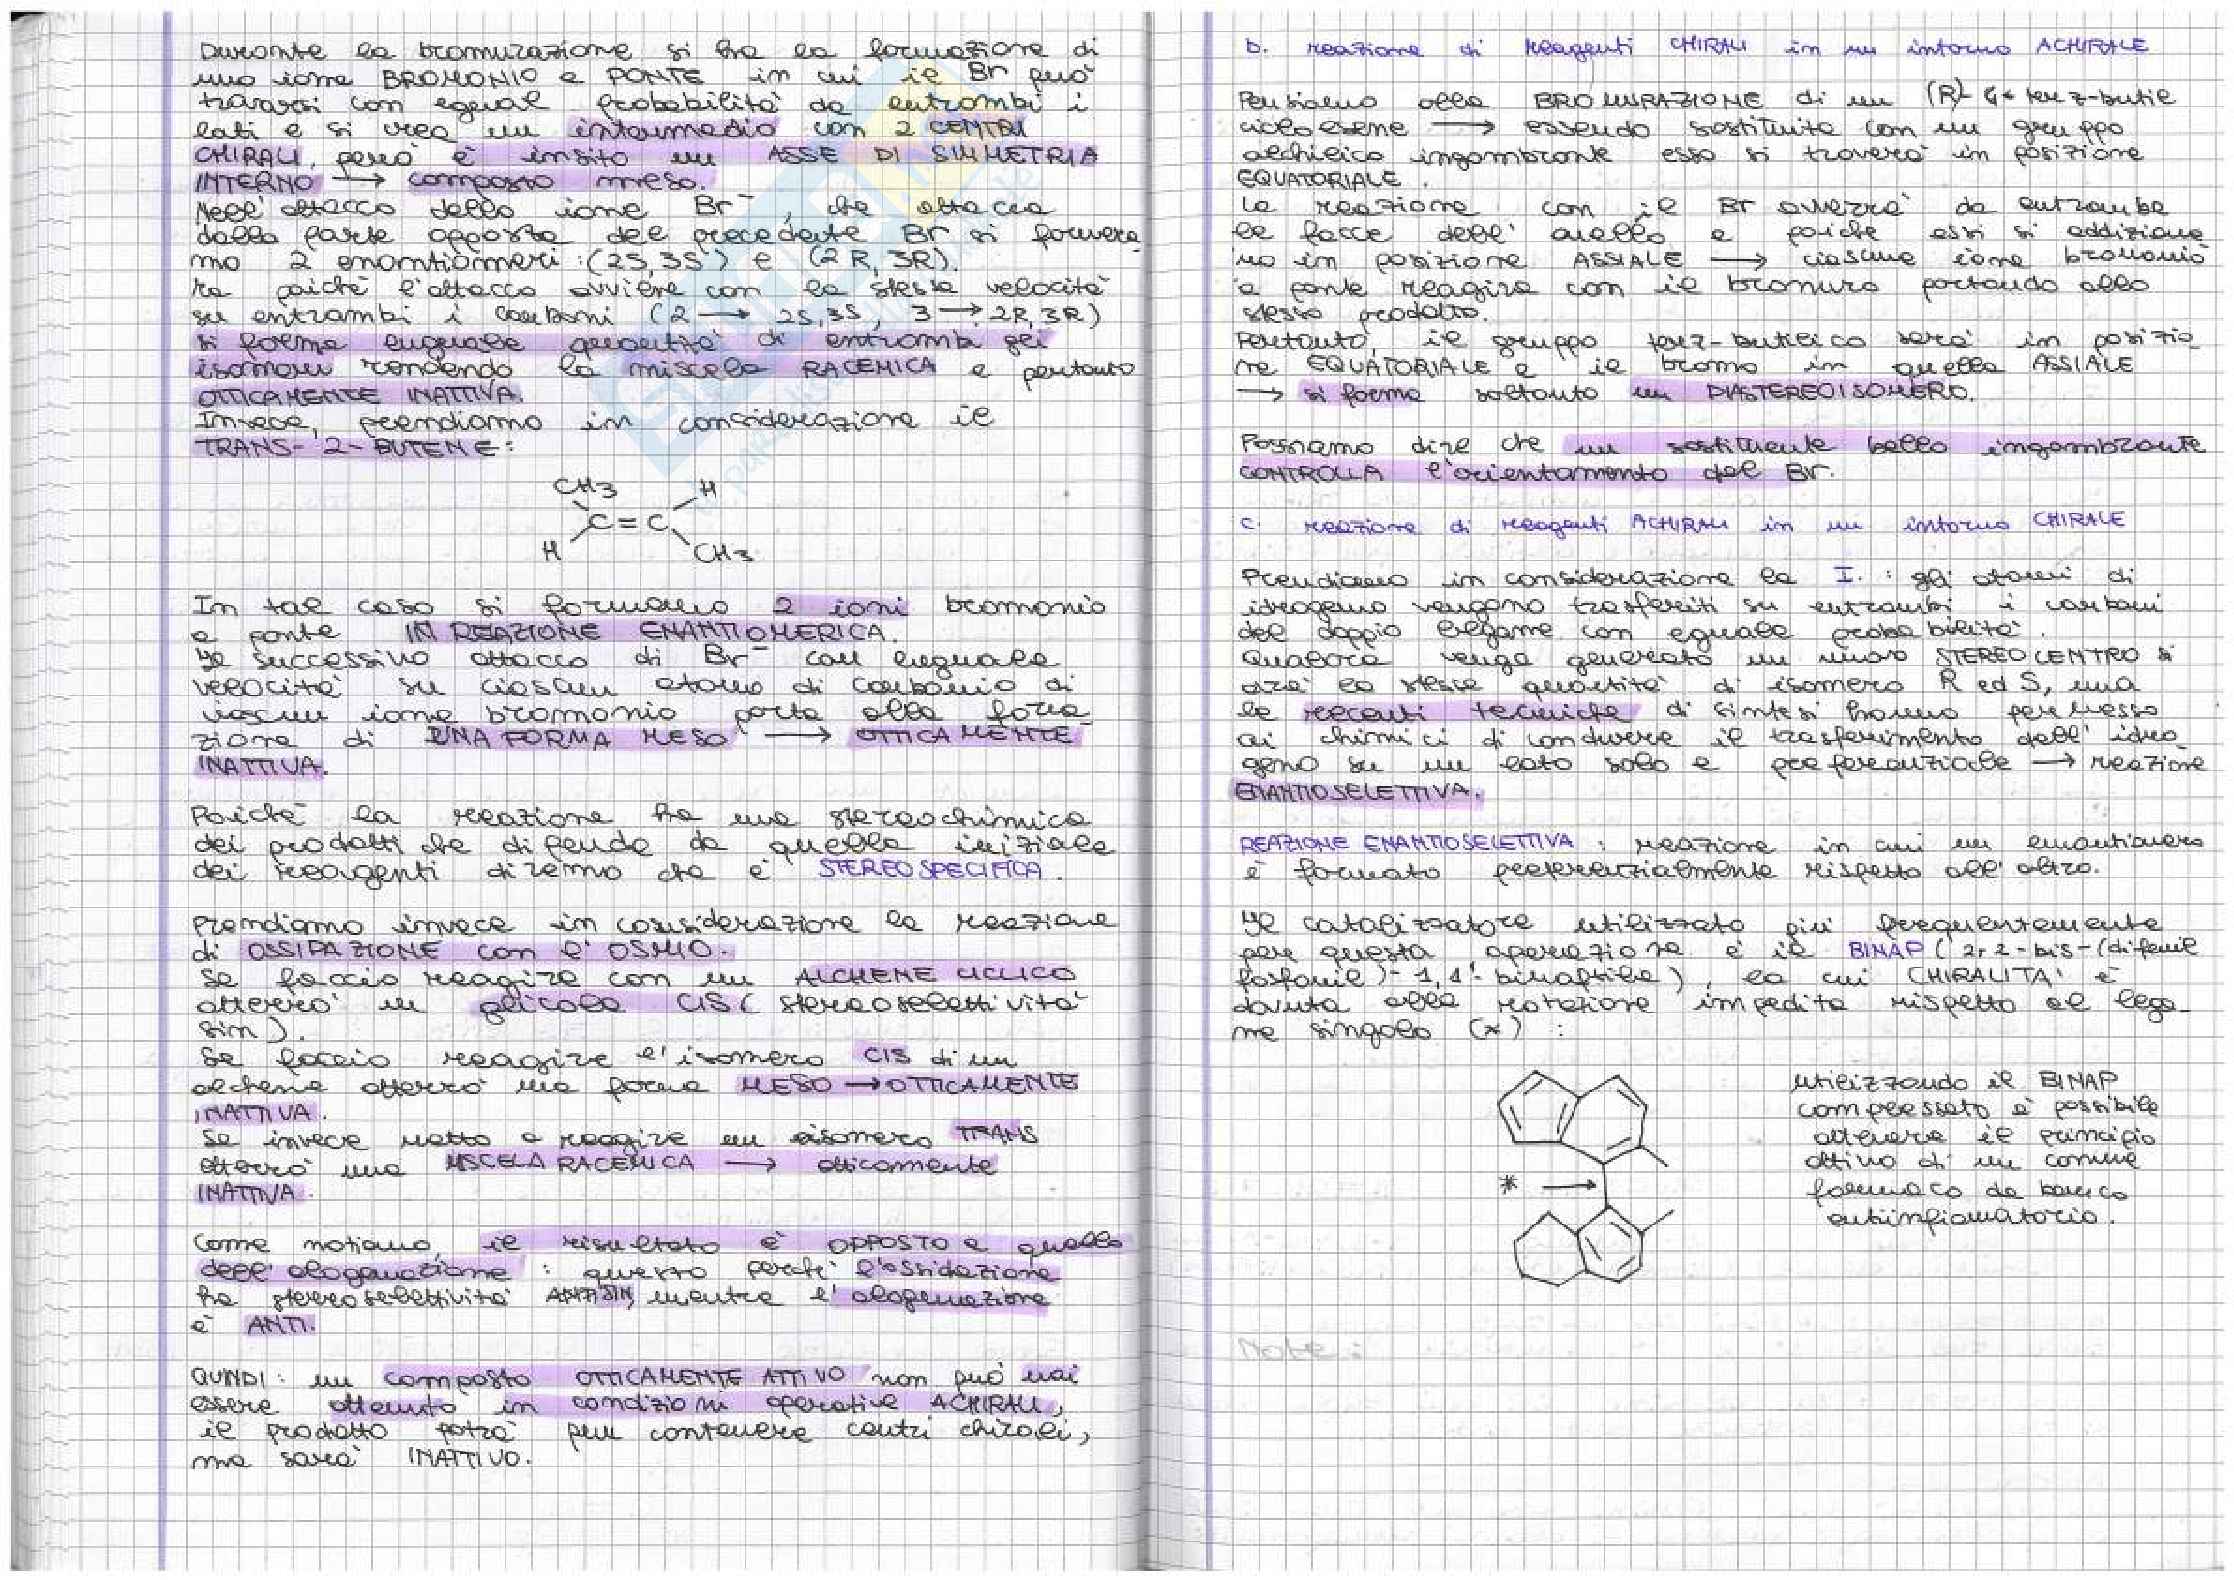 Durante la bromurazione si ha la formazione di
uno ione BROMONIO a PONTE in cui il Br può
trovarsi con egual probabilità da entrambi i
lati e si crea un intermedio con 2 CENTRI
CHIRALI, però è insito un ASSE DI SIMMETRIA
INTERNO → composto meso.
Nell'attacco dello ione Br⁻, che attacca
dalla parte opposta del precedente Br si forme
mo 2 enantiomeri: (2S,3S) e (2R,3R).
Ma poiché l'attacco avviene con la stessa velocità
su entrambi i carboni (2 → 2S,3S, 3 → 2R,3R)
si forma euguale quantità di entrambi gli
isomeri rendendo la miscela RACEMICA e pertanto
OTTICAMENTE INATTIVA.
Invece, prendiamo in considerazione il
TRANS-2-BUTENE:
CH3 H
C=C
H CH3
In tal caso si formano 2 ioni bromonio
a ponte IN REAZIONE ENANTIOMERICA.
Il successivo attacco di Br⁻ con euguale
velocità su ciascun atomo di carbonio di
ciascun ione bromonio porta alla forma
zione di UNA FORMA MESO → OTTICAMENTE
INATTIVA.
Poiché la reazione ha una stereochimica
dei prodotti che dipende da quella iniziale
dei reagenti diremo che è STEREOSPECIFICA.
Prendiamo invece in considerazione la reazione
di OSSIDAZIONE con l'OSMIO.
Se faccio reagire con un ALCHENE CICLICO
otterrò un glicole CIS (stereoselettività
sin).
Se faccio reagire l'isomero CIS di un
alchene otterrò una forma MESO → OTTICAMENTE
INATTIVA.
Se invece metto a reagire un isomero TRANS
otterrò una MISCELA RACEMICA → otticamente
INATTIVA.
Come notiamo, il risultato è OPPOSTO a quello
dell'alogenazione: questo perché l'ossidazione
ha stereoselettività SIN, mentre l'alogenazione
è ANTI.
QUINDI: un composto OTTICAMENTE ATTIVO non può mai
essere ottenuto in condizioni operative ACHIRALI,
il prodotto potrà pur contenere centri chirali,
ma sarà INATTIVO.
b. reazione di reagenti CHIRALI in un intorno ACHIRALE
Pensiamo alla BROMURAZIONE di un (R)-4-terz-butil
cicloesene → essendo sostituito con un gruppo
alchilico ingombrante esso si troverà in posizione
EQUATORIALE.
La reazione con il Br avverrà da entrambe
le facce dell'anello e poiché essi si addiziona
no in posizione ASSIALE → ciascuno ione bromonio
a ponte reagirà con il bromuro portando allo
stesso prodotto.
Pertanto, il gruppo terz-butilico sarà in posizio
ne EQUATORIALE e il bromo in quella ASSIALE
→ si forma soltanto un DIASTEREOISOMERO.
Possiamo dire che un sostituente bello ingombrante
CONTROLLA l'orientamento del Br.
c. reazione di reagenti ACHIRALI in un intorno CHIRALE
Prendiamo in considerazione la I. : gli atomi di
idrogeno vengono trasferiti su entrambi i carboni
del doppio legame con eguale probabilità.
Qualora venga generato un nuovo STEREOCENTRO si
avrà la stessa quantità di isomero R ed S, ma
le recenti tecniche di sintesi hanno permesso
ai chimici di condurre il trasferimento dell'idro
geno su un lato solo e preferenziale → reazione
ENANTIOSELETTIVA.
REAZIONE ENANTIOSELETTIVA: reazione in cui un enantiomero
è formato preferenzialmente rispetto all'altro.
Il catalizzatore utilizzato più frequentemente
per questa operazione è il BINAP (2,2-bis-(difenil
fosfonil)-1,1'-binaftile), la cui CHIRALITÀ è
dovuta alla rotazione impedita rispetto al lega-
me singolo (*) :
*
utilizzando il BINAP
complessato è possibile
ottenere il principio
attivo di un comune
farmaco da banco
antinfiamatorio.
Note: